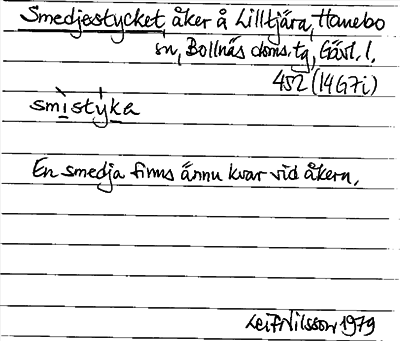 Smedjestycket åker å Lilltjära, Hanebo
sn, Bollnäs doms. tg, Gävl. l.
452 (14G7i)
smìstỳka
En smedja finns ännu kvar vid åkern.
Leif Nilsson 1979